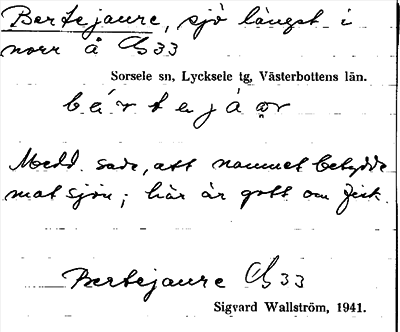 Bertejaure, sjö längst i
norr å Gb 33
Sorsele sn, Lycksele tg, Västerbottens län.
bä́rtejáạr
Medd. sade, att namnet betydde
matsjön; här är gott om fisk.
Bertejaure Gb 33
Sigvard Wallström, 1941.